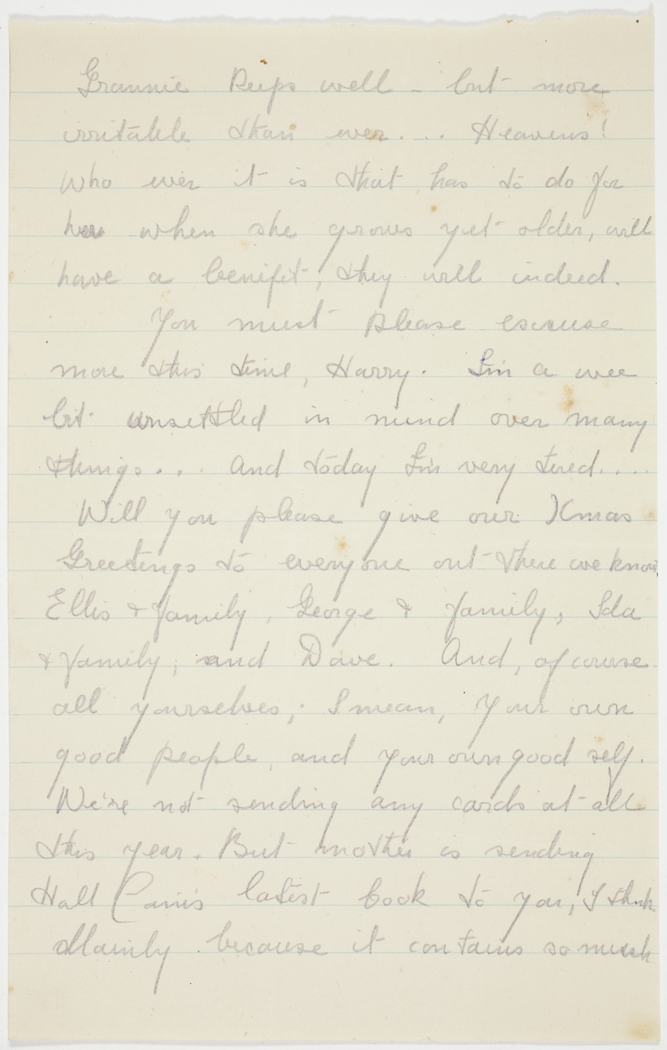 Grannie keeps well - but more
irritable than ever... Heavens!
Who ever it is that has to do for
her when she grows yet older, will
have a benifit, they will indeed.
You must please excuse
more this time, Harry. I'm a wee
bit unsettled in mind over many
things... And today I'm very tired....
Will you please give our Xmas
Greetings to everyone out there we know,
Ellis & family, George & family, Ida
& family, and Dave. And, of course
all yourselves; I mean, your own
good people, and your own good self.
We're not sending any cards at all
this year. But mother is sending
Hall Cain's latest book to you, I think
Mainly because it contains so much